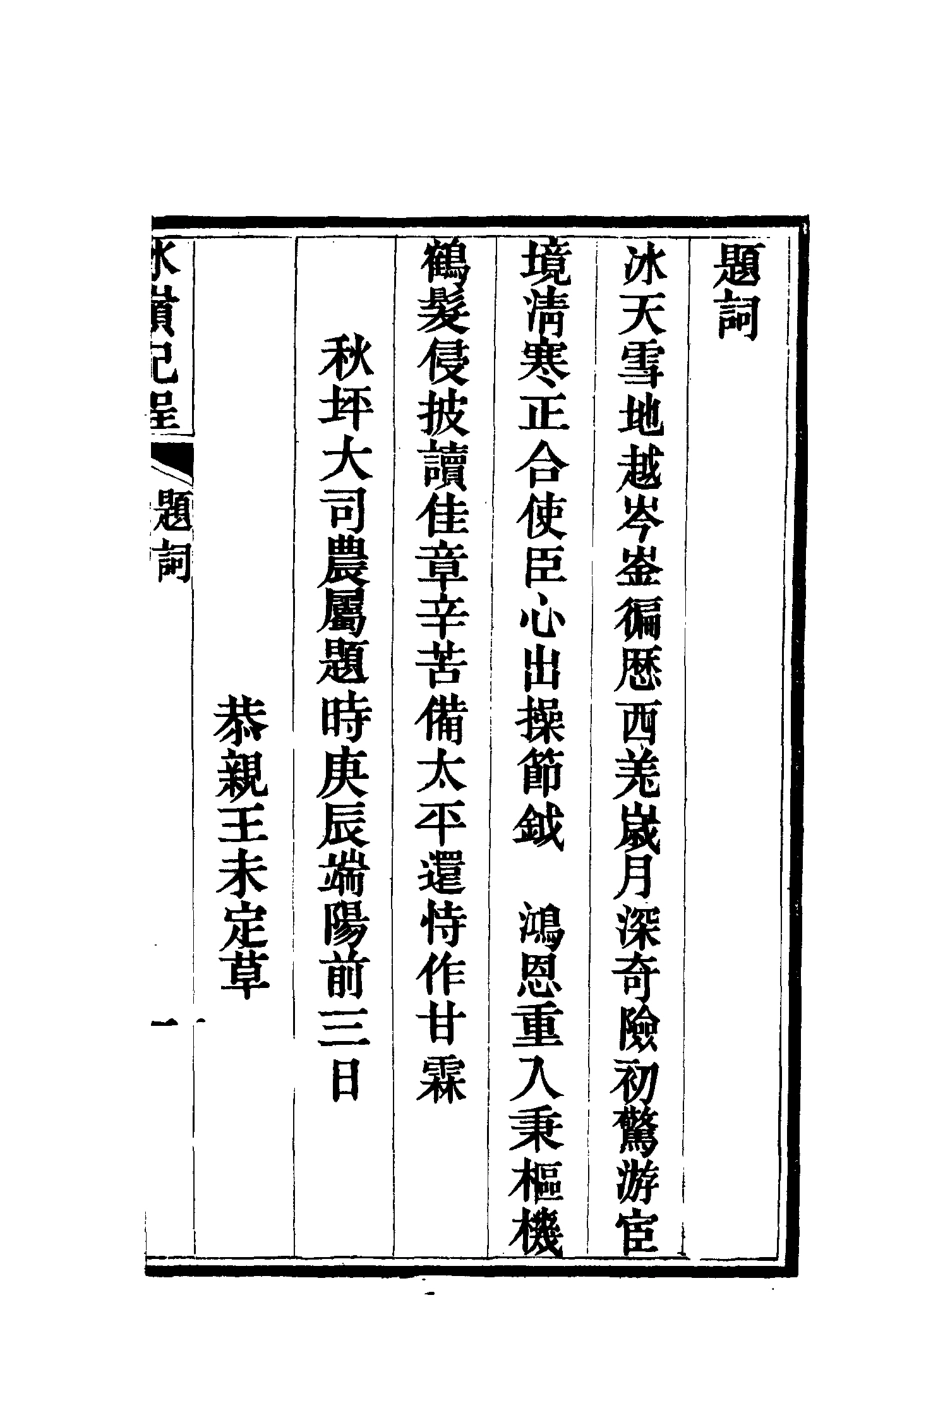 題詞
冰天雪地越岑崟徧歷西羗歲月深奇險初驚游宦
境淸寒正合使臣心出操節鉞　鴻恩重入秉樞機
鶴髮侵披讀佳章辛苦備太平還恃作甘霖
秋坪大司農屬題時庚辰端陽前三日
恭親王未定草
冰嶺紀程
題詞
一